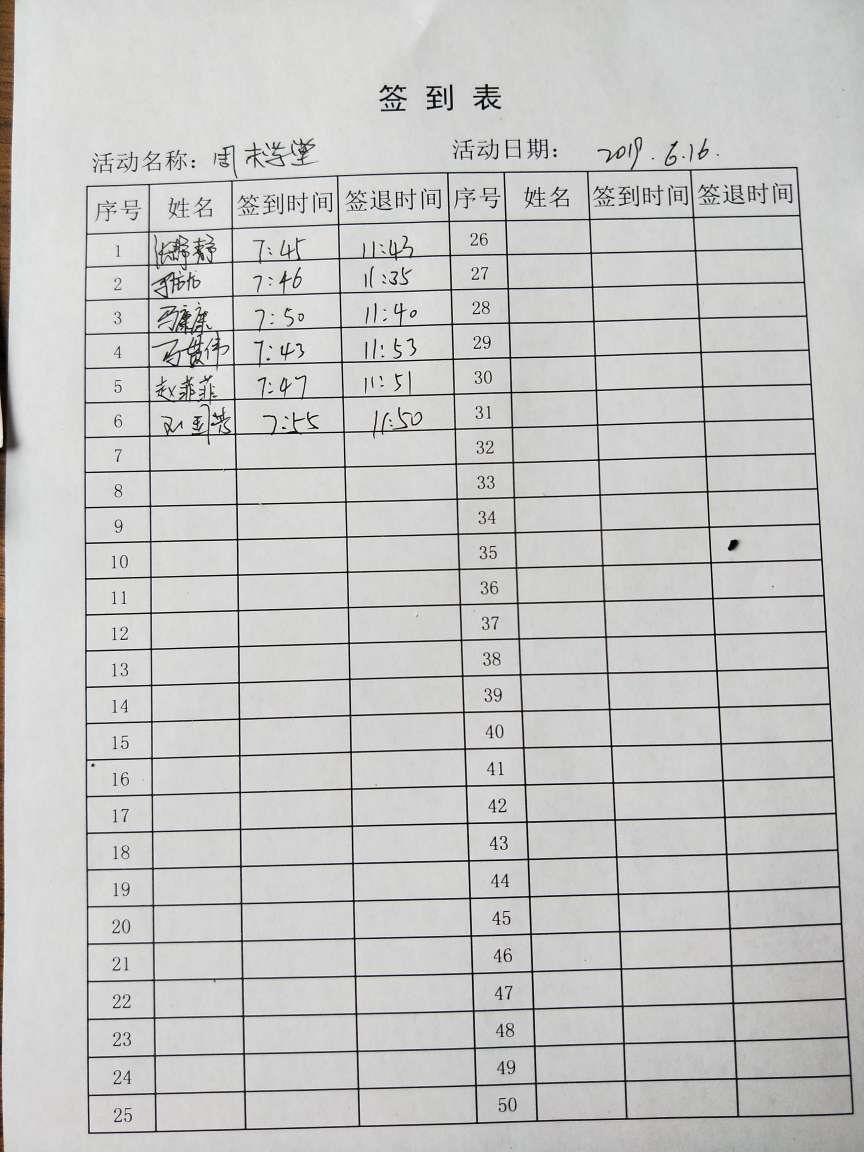 签到表
活动名称：周末学堂 活动日期： 2019.6.16.
序号 姓名 签到时间 签退时间 序号 姓名 签到时间 签退时间
1 7:45 11:43 26
2 7:46 11:35 27
3 马康康 7:50 11:40 28
4 马贵伟 7:43 11:53 29
5 赵菲菲 7:47 11:51 30
6 7:55 11:50 31
7 32
8 33
9 34
10 35
11 36
12 37
13 38
14 39
15 40
16 41
17 42
18 43
19 44
20 45
21 46
22 47
23 48
24 49
25 50